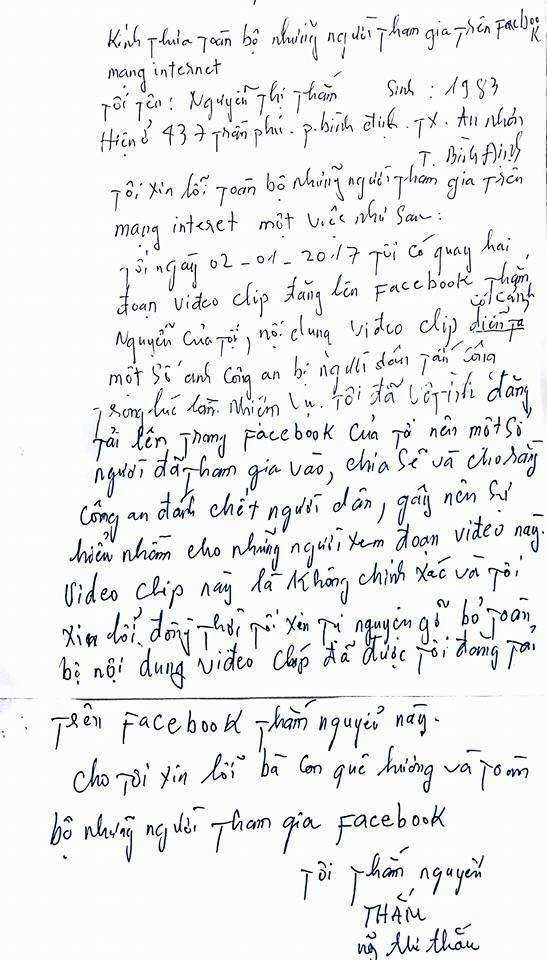 Kính thưa toàn bộ những người tham gia trên Facebook
mạng internet
Tôi tên: Nguyễn Thị Thắm Sinh: 1983
Hiện ở 437 Trần phú. p. bình định. TX. An nhơn
T. Bình Định
Tôi xin lỗi toàn bộ những người tham gia trên
mạng interet một việc như sau:
Tối ngày 02-01-2017 Tôi có quay hai
đoạn video clip đăng lên Facebook Thắm
Nguyễn của tôi, nội dung video clip có cảnh diễn tả
một số anh công an bị người dân tấn công
trong lúc làm nhiệm vụ. Tôi đã vô tình đăng
tải lên trang facebook của tôi nên một số
người đã tham gia vào, chia sẽ và cho rằng
công an đánh chết người dân, gây nên sự
hiểu nhầm cho những người xem đoạn video này.
Video clip này là không chính xác và tôi
xin lỗi. đồng thời tôi xin tự nguyện gỡ bỏ toàn
bộ nội dung video clip đã được tôi đăng tải
trên Facebook Thắm nguyễn này.
cho tôi xin lỗi bà con quê hương và toàn
bộ những người tham gia Facebook
Tôi Thắm nguyễn
THẮM
ng thi thắm